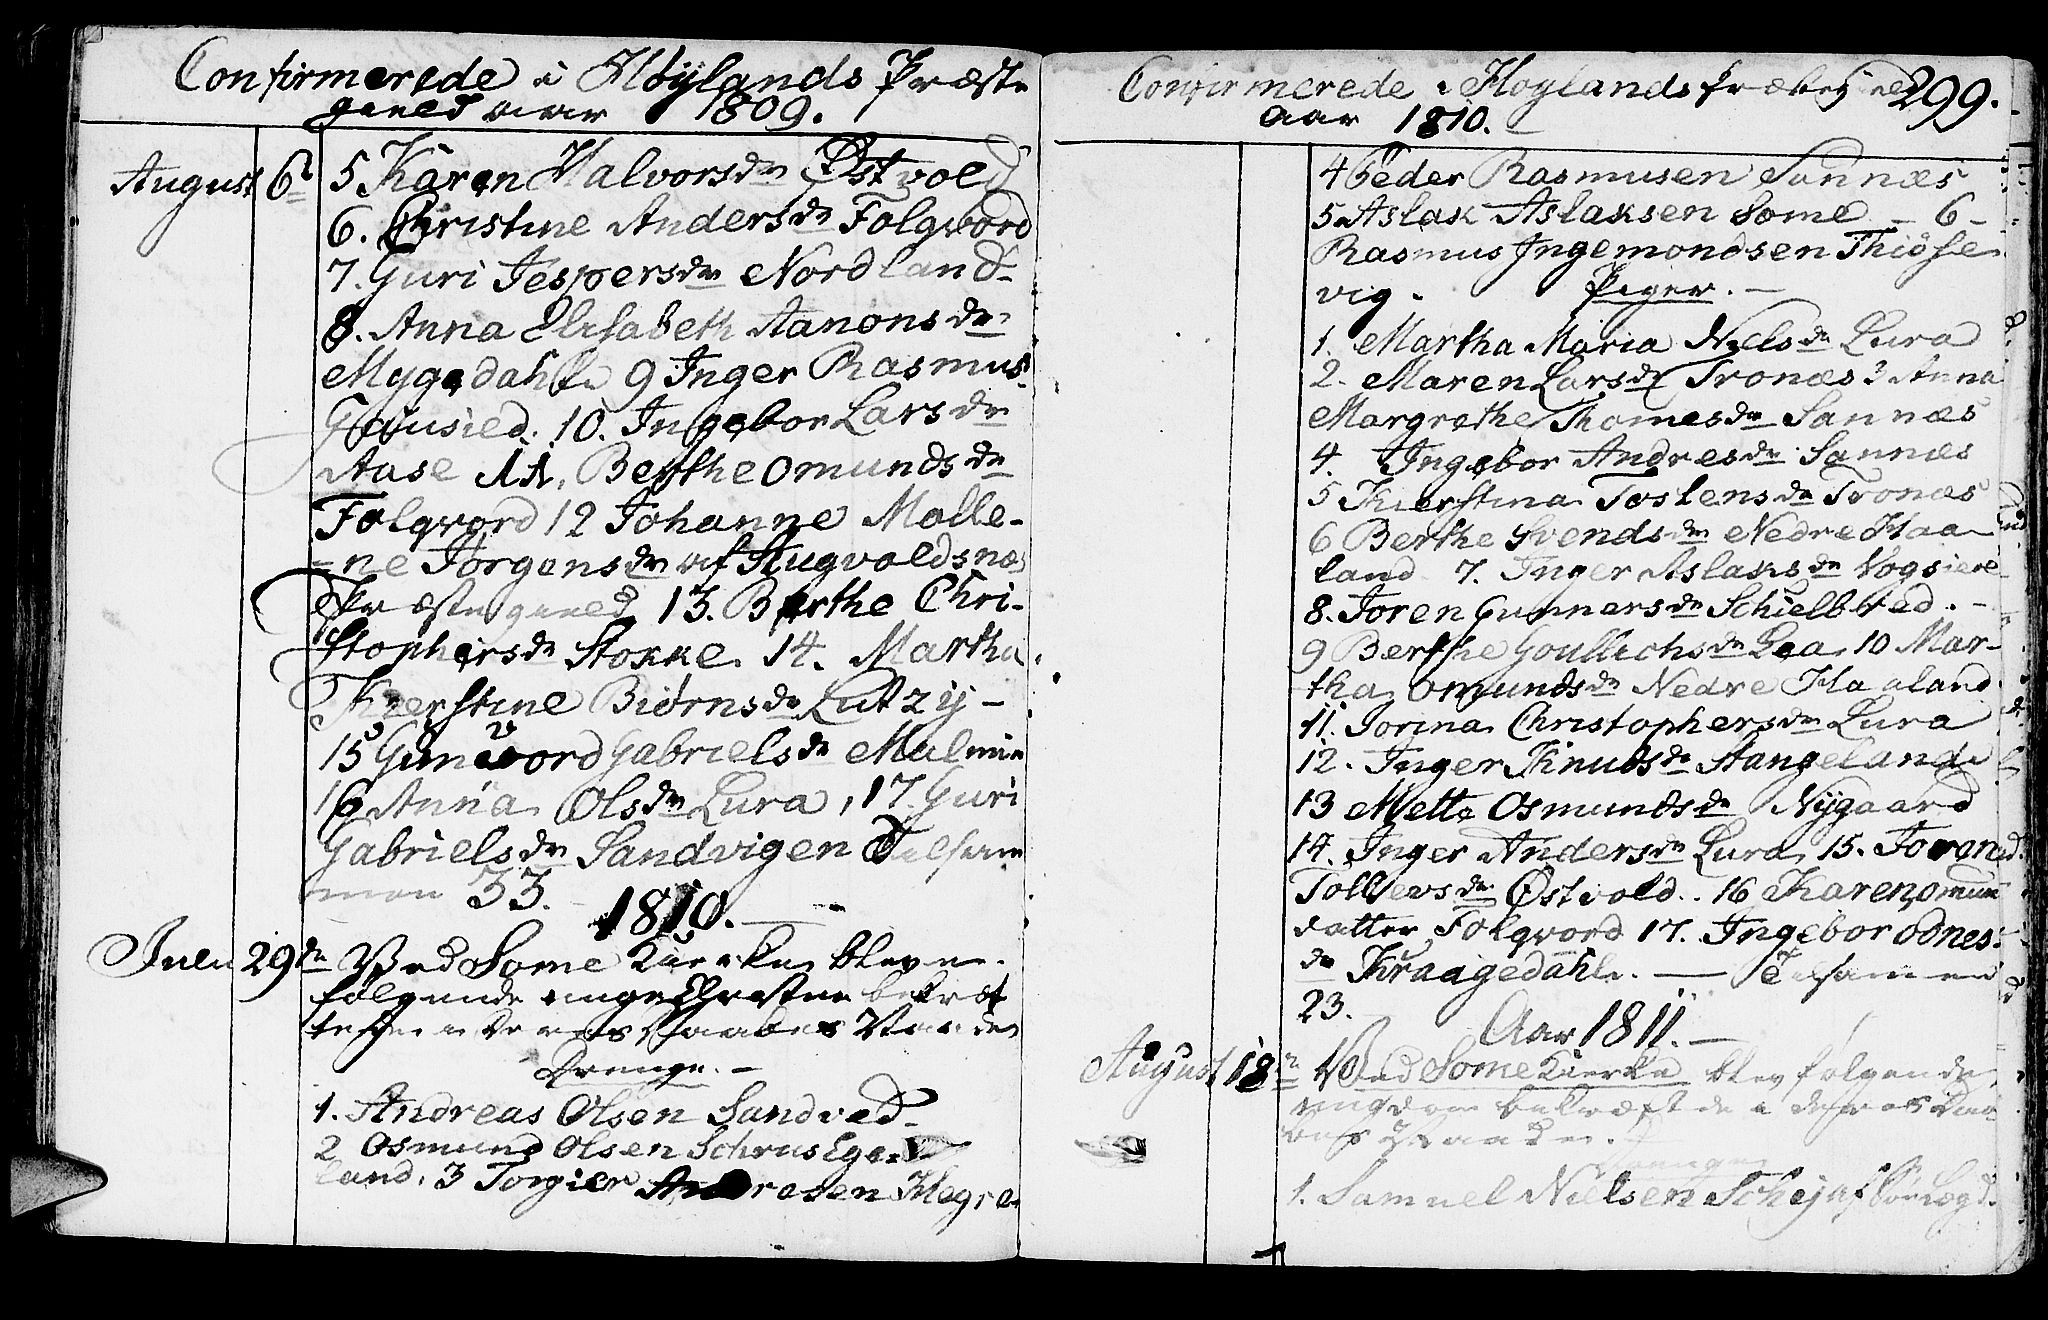 Confirmerede i Høÿlands Præste
gield aar 1809.
August 6t 5 Karen Halvorsdr Østvold
6. Christine Andersdr Folqvord
7. Guri Jespersdr Nordland
8. Anna Elisabeth Aanonsdr
Mygedahl 9 Inger Rasmus
Gausied. 10. Ingebor Larsdr
Aase 11. Berthe Omundsdr
Folqvord 12 Johanne Malle-
-ne Jørgensdr af Augvoldsnæs
Præstegield 13. Berthe Chri-
stophersdr Stokke. 14. Martha
Kierstine Biørnsdr Lutzij-
15 Gunvord Gabrielsdr Malmin
16 Anna Olsdr Lura, 17. Guri
Gabrielsdr Sandvigen Tilsam
men 33.
1810.
Juli 29de Ved Some Kierke bleve
følgende unge Christne bekræf
tede i deres Daabes
Drenge.
1. Andreas Olsen Sandved
2 Osmund Olsen Schrus Ege-
land, 3 Torgier Andresen Hegre
Confirmerede i Høylands Præstegield 299.
Aar 1810.
4 Peder Rasmusen Sannæs
5. Aslak Aslaksen Some - 6-
Rasmus Ingemondsen Thiosse
vig. Piger.
1. Martha Maria Nielsdr Lura
2. Maren Larsdr Tronæs 3 Anna
Margrethe Thomesdr Sannæs
4. Ingebor Andresdr Sannæs
5 Kierstina Tostensdr Tronæs
6 Berthe Svendsdr Nedre Haa
land 7. Inger Aslaksdr Vogsiere
8. Joren Gunnersdr Schielbred.
9 Berthe Goullichsdr Lea, 10 Mar-
tha Omundsdr Nedre Haaland
11. Jorina Christophersdr Lura
12. Inger Knudsdr Stangeland
13 Mette Osmundsdr Nÿgaard
14. Inger Andersdr Lura, 15. Joren
Tollevsdr Østvold. 16 Karen Omun
datter Folqvord 17. Ingebor Odnes
dr Kraagedahl. - Tilsamen
23.
Aar 1811.
August 18n Ved Some Kierke blev følgende
ungdom bekræftede i deres Daa
bes
Drenge
1. Samuel Nielsen Schej af